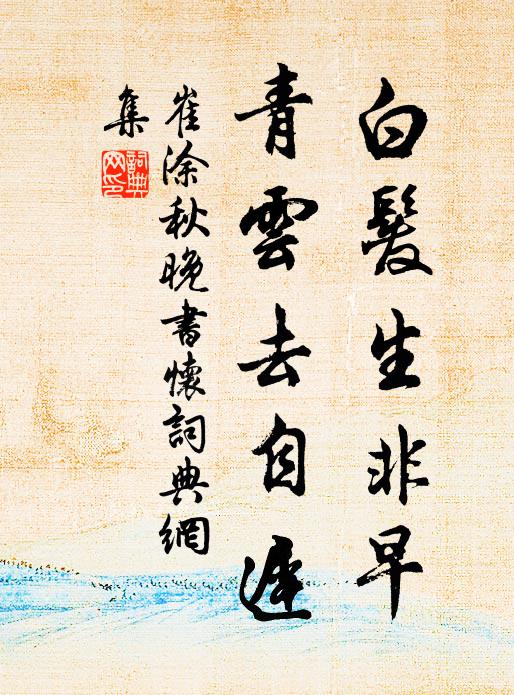 白髮生非早
青雲去自遲
崔涂秋晚書懷詞典網
集
詞典
网印